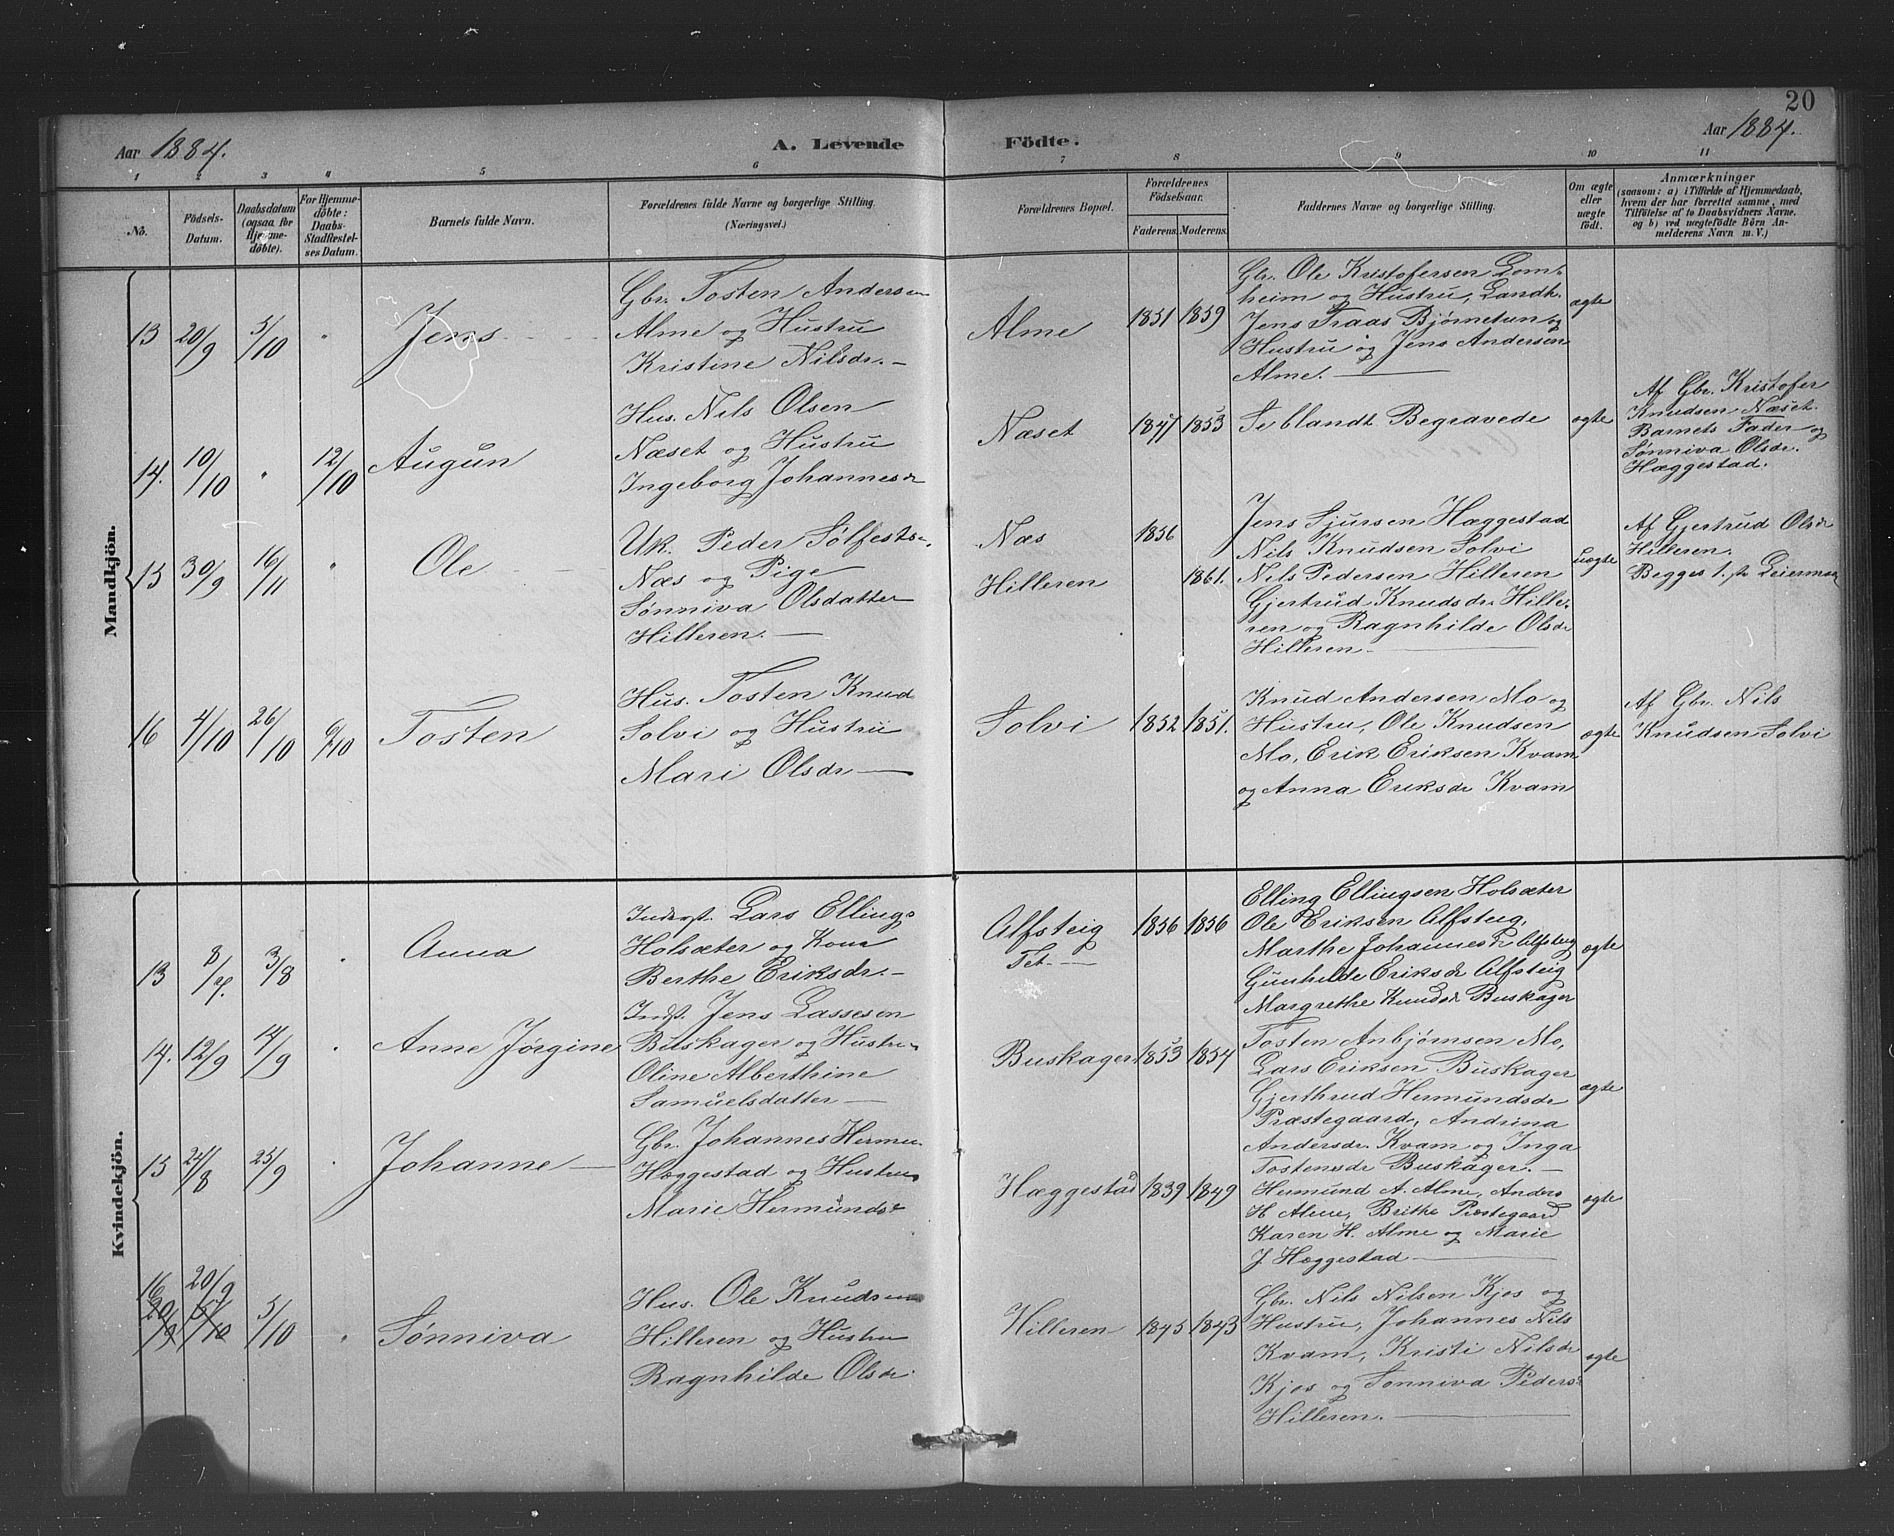 20
Aar 1884.
A. Levende
Födte.
Aar 1884.
1
2
3
4
5
6
7
8
9
10
11
No.
Födsels-
Datum.
Daabsdatum
(ogsaa for
Hjemme-
döbte).
For Hjemme-
döbte:
Daabs-
Stadfæstel-
ses Datum.
Barnets fulde Navn.
Forældrenes fulde Navne og borgerlige Stilling.
(Næringsvei.)
Forældrenes Bopæl.
Forældrenes
Födselsaar.
Faderens.
Moderens.
Faddernes Navne og borgerlige Stilling.
Om ægte
eller
uægte
födt.
Anmærkninger
(saasom: a) i Tilfælde af Hjemmedaab,
hvem der har forrettet samme, med
Tilföielse af to Daabsvidners Navne,
og b) ved uægtefödte Börn An-
melderens Navn m. V.)
Mandkjön.
13
20/9
5/10
"
Jens
Gbr. Tosten Andersen
Alme og Hustru
Kristine Nilsdr. —
Alme
1851
1859
Gbr. Ole Kristofersen Lom-
heim og Hustru, Landh.
Jens Traas Bjørnetun og
Hustru og Jens Andersen
Alme. —
ægte
14.
10/10
"
12/10
Augun
Hus. Nils Olsen
Næset og Hustru
Ingeborg Johannesdr
Næset
1847
1853
Se blandt Begravede
ægte
Af Gbr. Kristofer
Knudsen Næset.
Barnets Fader og
Sønniva Olsdr.
Hæggestad.
15
30/9
16/11
"
Ole
Uk. Peder Sølfests.
Næs og Pige
Sønniva Olsdatter
Hilleren. —
Næs
Hilleren
1856
1861.
Jens Sjursen Hæggestad
Nils Knudsen Solvi
Nils Pedersen Hilleren
Gjertrud Knudsdr. Hille-
ren og Ragnhilde Olsdr
Hilleren. —
uægte
Af Gjertrud Olsdr
Hilleren.
Begges 1. ste Leiermaal
16
4/10
26/10
6/10
Tosten
Hus. Tosten Knud
Solvi og Hustru
Mari Olsdr —
Solvi
1852
1851.
Knud Andersen Mo og
Hustru, Ole Knudsen
Mo, Erik Eriksen Kvam
og Anna Eriksdr Kvam
ægte
Af Gbr. Nils
Knudsen Solvi
Kvindekjön.
13
8/7.
3/8
"
Anna
Inderst. Lars Ellings
Holsæter og Kone
Berthe Eriksdr. —
Alfsteig
Tet —
1856
1856
Elling Ellingsen Holsæter
Ole Eriksen Alfsteig,
Marthe Johannesdr Alfsteig
Gunhilde Eriksdr Alfsteig
Margrethe Knudsdr Buskager
ægte
14.
12/9
14/9
"
Anne Jørgine
Indst. Jens Lassesen
Buskager og Hustru
Oline Alberthine
Samuelsdatter —
Buskager
1853
1854
Tosten Anbjørnsen Mo,
Lars Eriksen Buskager
Gjerthrud Hermundsdr
Præstegaard, Andrina
Andersdr. Kvam og Inga
Tostensdr Buskager. —
ægte
15
24/8
25/9
"
Johanne —
Gbr. Johannes Hermu.
Hæggestad og Hustru
Marie Hermundsdr
Hæggestad
1839
1849
Hermund A. Alme, Anders
H Alme, Brithe Præstegaard
Karen H. Alme og Marie
J Hæggestad —
ægte
16
20/9
20/9
5/10
5/10
"
Sønniva
Hus. Ole Knudsen
Hilleren og Hustru
Ragnhilde Olsdr.
Hilleren
1845
1843
Gbr. Nils Nilsen Kjos og
Hustru, Johannes Nils
Kvam, Kristi Nilsdr
Kjos og Sønniva Pedersdr
Hilleren. —
ægte